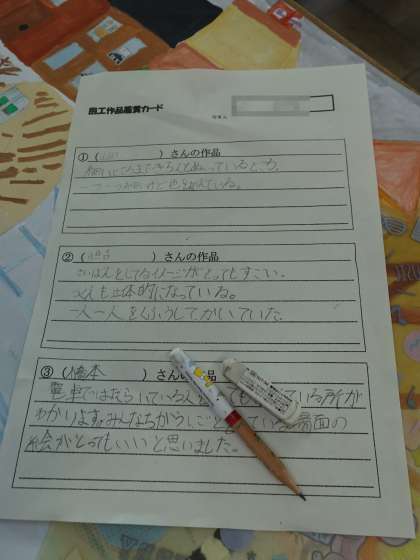 図工作品鑑賞カード
①( )さんの作品
細いところまできちんとぬっているところ。
一つ一つ
②( )さんの作品
さいばんをしてるイメージがとってもすごい。
つくえも立体的になっている。
一人一人をくふうしてかいていた。
③(橋本 )さんの作品
電車ではたらいている人 ている所が
わかります。みんなちがうしごとをしている場面の
絵がとってもいいと思いました。